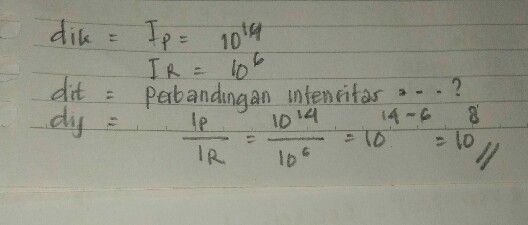 dik = Ip = 10¹⁴
IR = 10⁶
dit = perbandingan intensitas . . . ?
dij = Ip/IR = 10¹⁴/10⁶ = 10¹⁴⁻⁶ = 10⁸ //